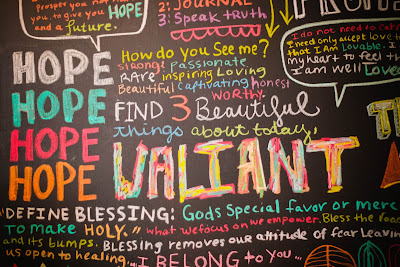 prosper you not
you. to give you HOPE
and a future.
2: JOURNAL
3: Speak truth
I do not need to
I need only accept love
that I am Lovable. I
my heart to feel
I am well Loved
How do you See me?
strong passionate
RARE inspiring Loving
Beautiful captivating honest
WORTHY.
FIND 3 Beautiful
things about today,
HOPE
HOPE
HOPE
HOPE
VALIANT
"DEFINE BLESSING: Gods Special favor or
TO make HOLY." what we focus on we empower. Bless the
and its bumps. BLESSING removes our attitude of fear
us open to healing... I BELONG to you...